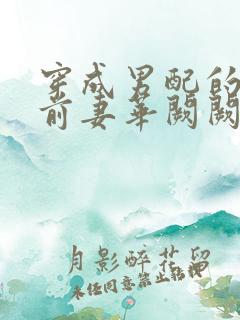 穿成男配的
前妻华阙阙
月影醉花留
未经同意禁止转押